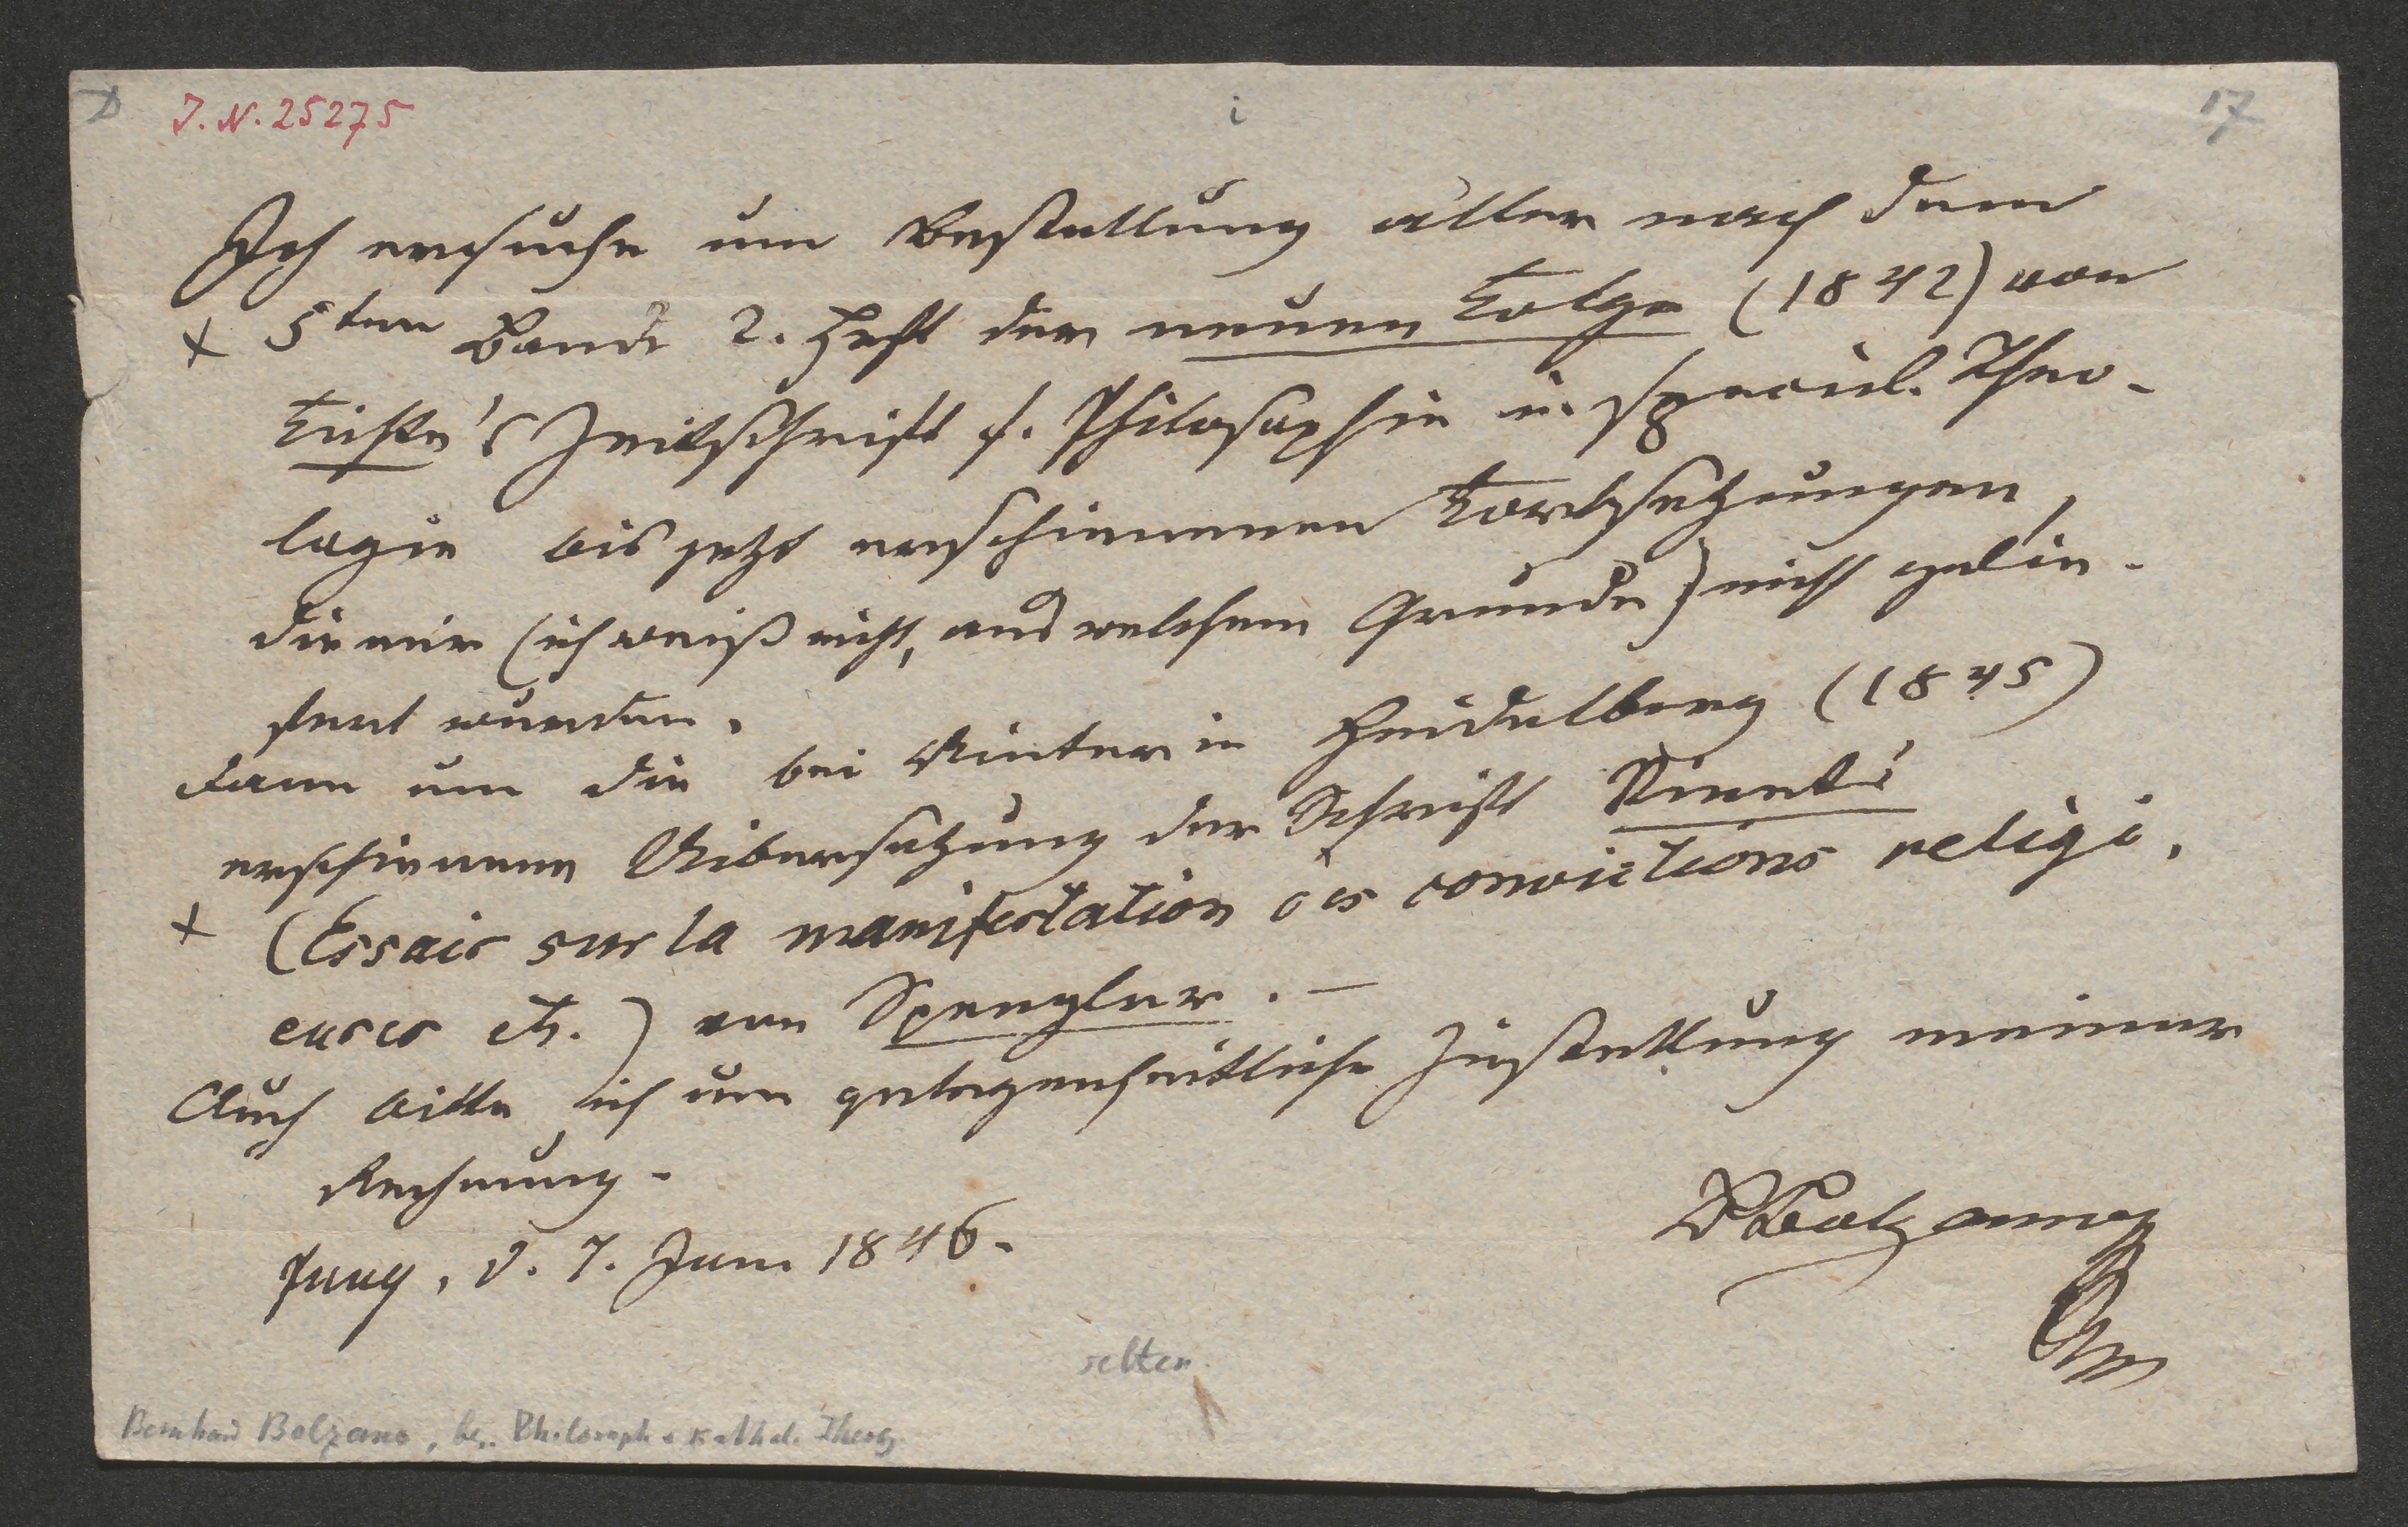 J. N. 25275
i
17
Ich ersuche um Bestellung aller nach dem
+ 5ten Bande 2. Heft der neuen Folge (1842) von
Fichte's Zeitschrift f. Philosophie u. specul. Theo-
logie bis jetzt erschienenen Fortsetzungen,
die mir (ich weiß nicht, aus welchem Grunde) nicht gelie-
fert wurden.
dann um die bei Winter in Heidelberg (1845)
erschienene Uibersetzung der Schrift Vinet's
+ (Essais sur la manifestation des convictions religi,
euses etc.) von Spengler. —
Auch bitte ich um gelegenheitliche Zustellung meiner
Rechnung.
Prag, d. 7. Juni 1846.
B Bolzano
selten
Bernhard Bolzano, Philosoph u. kathol. Theolog